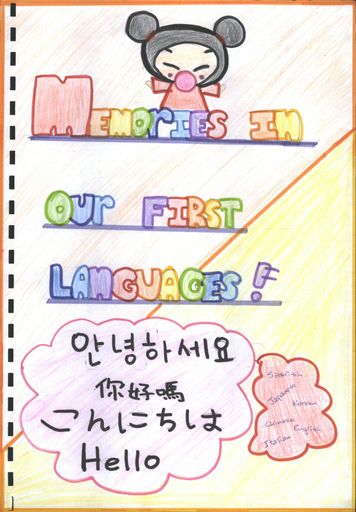 Memories in
Our First
Languages!
안녕하세요
你好嗎
こんにちは
Hello
Spanish
Japanese
Korean
Chinese
English
Italian